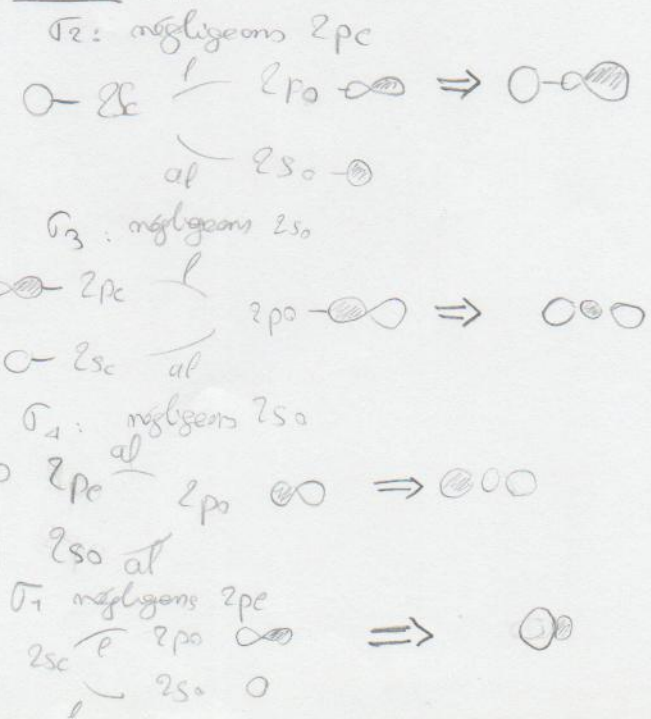 σ2: négligeons 2pc
2sc l 2po ⇒
al 2so
σ3: négligeons 2so
2pc l
2po ⇒
2sc al
σ4: négligeons 2so
al
2pc 2po ⇒
2so al
σ1 négligeons 2pc
2sc l 2po ⇒
2so
l